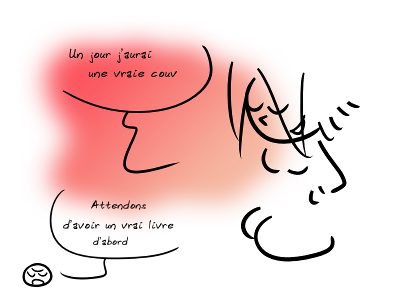 Un jour j'aurai
une vraie couv
Attendons
d'avoir un vrai livre
d'abord